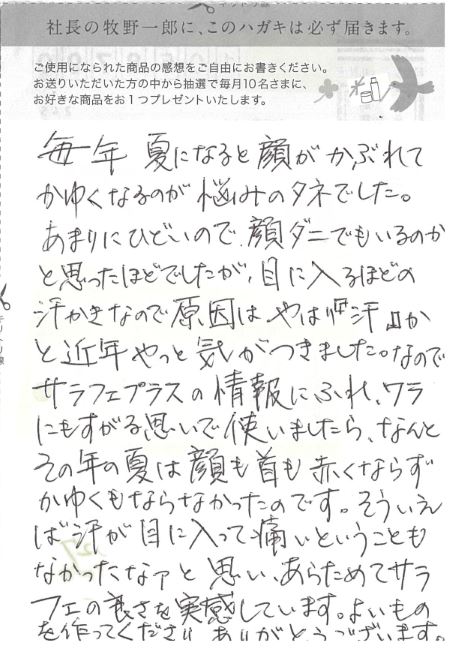 キリトリ線
社長の牧野一郎に、このハガキは必ず届きます。
ご使用になられた商品の感想をご自由にお書きください。
お送りいただいた方の中から抽選で毎月10名さまに、
お好きな商品をお1つプレゼントいたします。
毎年 夏になると顔がかぶれて
かゆくなるのが悩みのタネでした。
あまりにひどいので、顔ダニでもいるのか
と思ったほどでしたが、目に入るほどの
汗かきなので原因は やは『汗』か
と近年やっと気がつきました。なので
サラフェプラスの情報にふれ、ワラ
にもすがる思いで使いましたら、なんと
その年の夏は顔も首も赤くならず
かゆくもならなかったのです。そういえ
ば汗が目に入って痛いということも
なかったなァと思い、あらためてサラ
フェの良さを実感しています。よいもの
を作ってください ありがとうございます。
キリトリ線